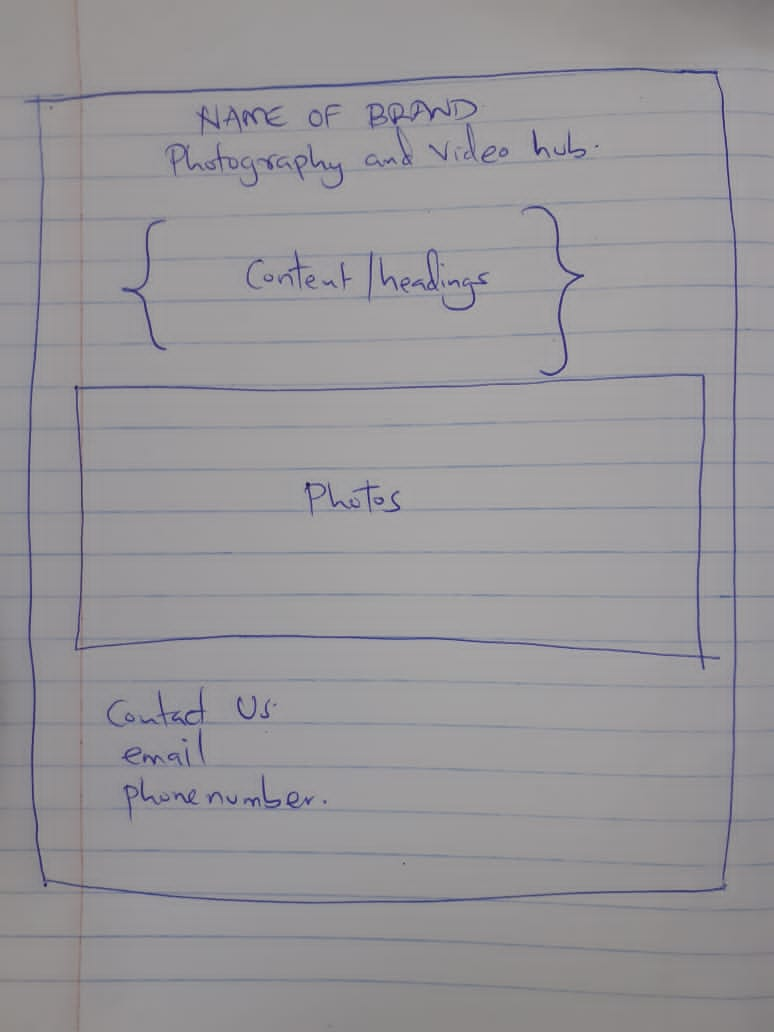 NAME OF BRAND
Photography and Video hub.
Content/headings
Photos
Contact Us
email
phone number.